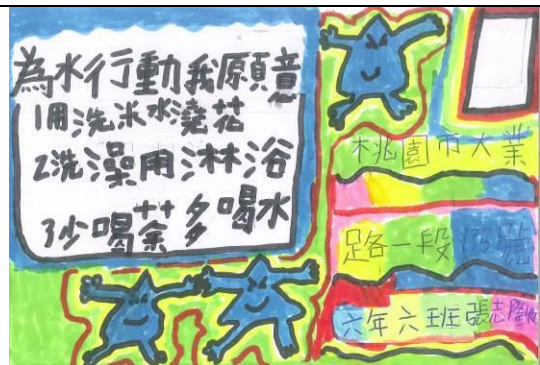 為水行動我願意
1用洗米水澆花
2洗澡用淋浴
3少喝茶多喝水
桃園市大業
路一段135號
六年六班張志